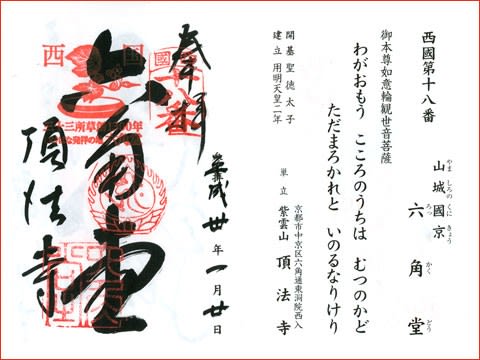 西國第十八番
山城國京 六角堂
やま しろの くに きょう ろっ かく どう
御本尊如意輪観世音菩薩
わがおもう こころのうちは むつのかど
ただまろかれと いのるなりけり
開基 聖徳太子
建立 用明天皇二年
京都市中京区六角通東洞院西入
単立 紫雲山 頂法寺
奉拝
平成廿年一月廿日
六角堂
頂法寺
西国